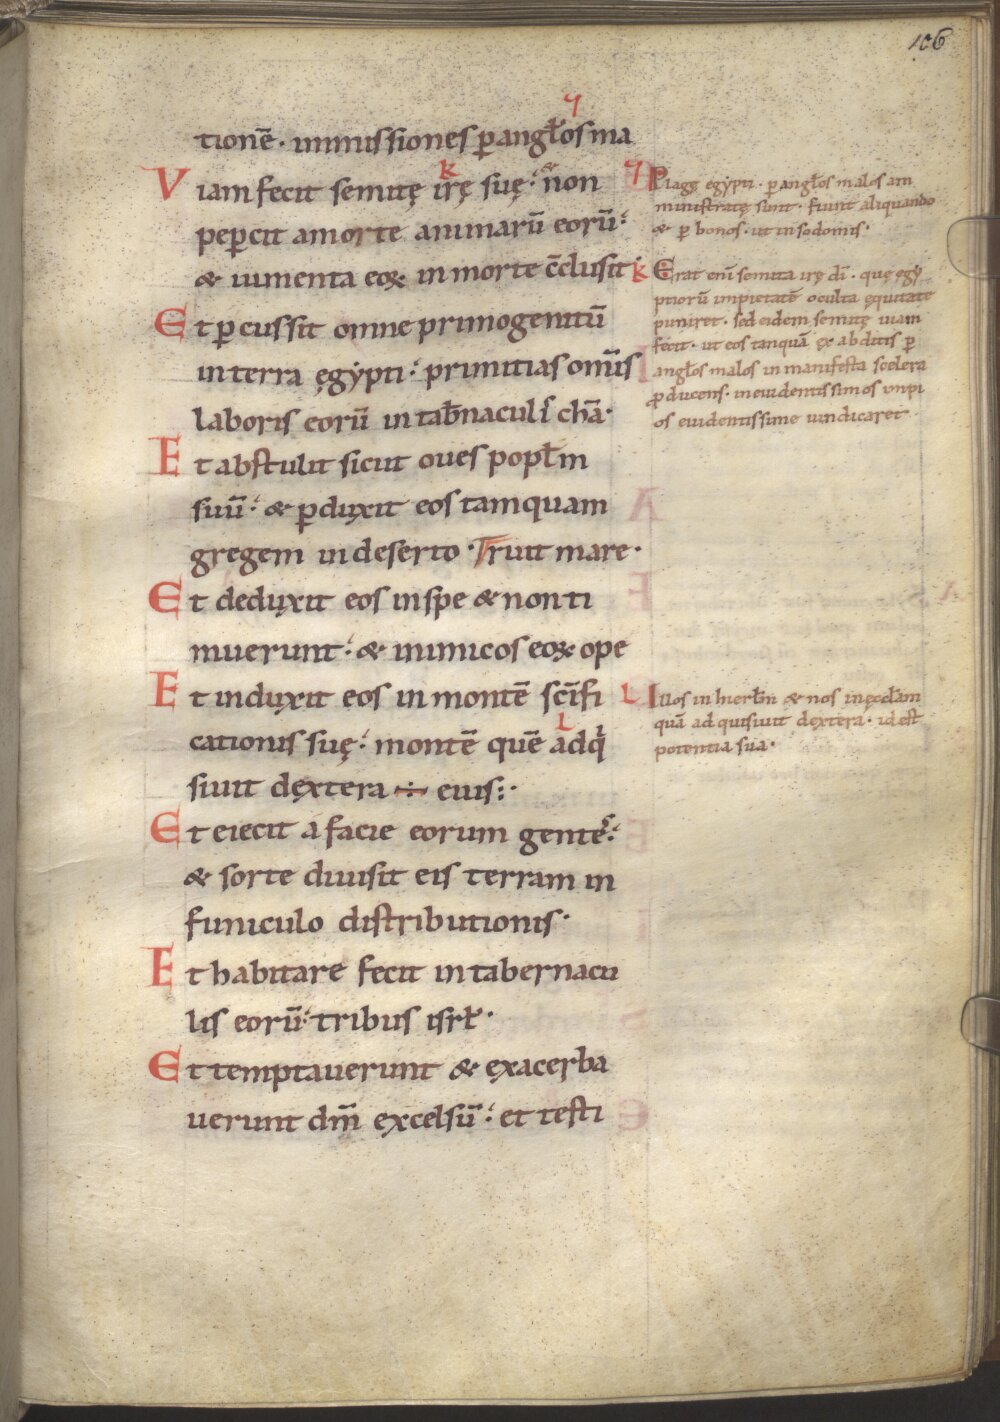 106
tionē · immissiones ꝑangłos ma
Viam fecit semitę irę suę · & non
peꝑcit amorte animarū eorū ·
& iumenta eoꝝ in morte c̄clusit ·
Et ꝑcussit omne primogenitū
in terra ęgypti · primitias omīs
laboris eorū in tab̄naculis chā ·
Et abstulit sicut oues popłm
suū · & ꝑduxit eos tamquam
gregem in deserto · ruit mare ·
Et deduxit eos in spe & non ti
muerunt · & inimicos eoꝝ ope
Et induxit eos in montē sc̄ifi
cationis suę · montē quē adq
siuit dextera ÷ eius ·
Et eiecit a facie eorum gentes ·
& sorte diuisit eis terram in
funiculo distributionis ·
Et habitare fecit in tabernacu
lis eorū · tribus isrł ·
Et temptauerunt & exacerba
uerunt dm̄ excelsū · et testi
Plagę egypti · ꝑ angłos malos am
ministratę sunt · fiunt aliquando
& ꝑ bonos · ut in sodomis ·
k Erat enī semita irę dī · quę egy
ptiorū impietatē occulta ęquitate
puniret · sed eidem semitę uiam
fecit · ut eos tanquā ex abditis ꝑ
angłos malos in manifesta scelera
ꝓducens · in euidentissimos impi
os euidentissime uindicaret
L Illos in hierłm & nos in ęcclam
quā adquisiuit dextera · id est
potentia sua ·